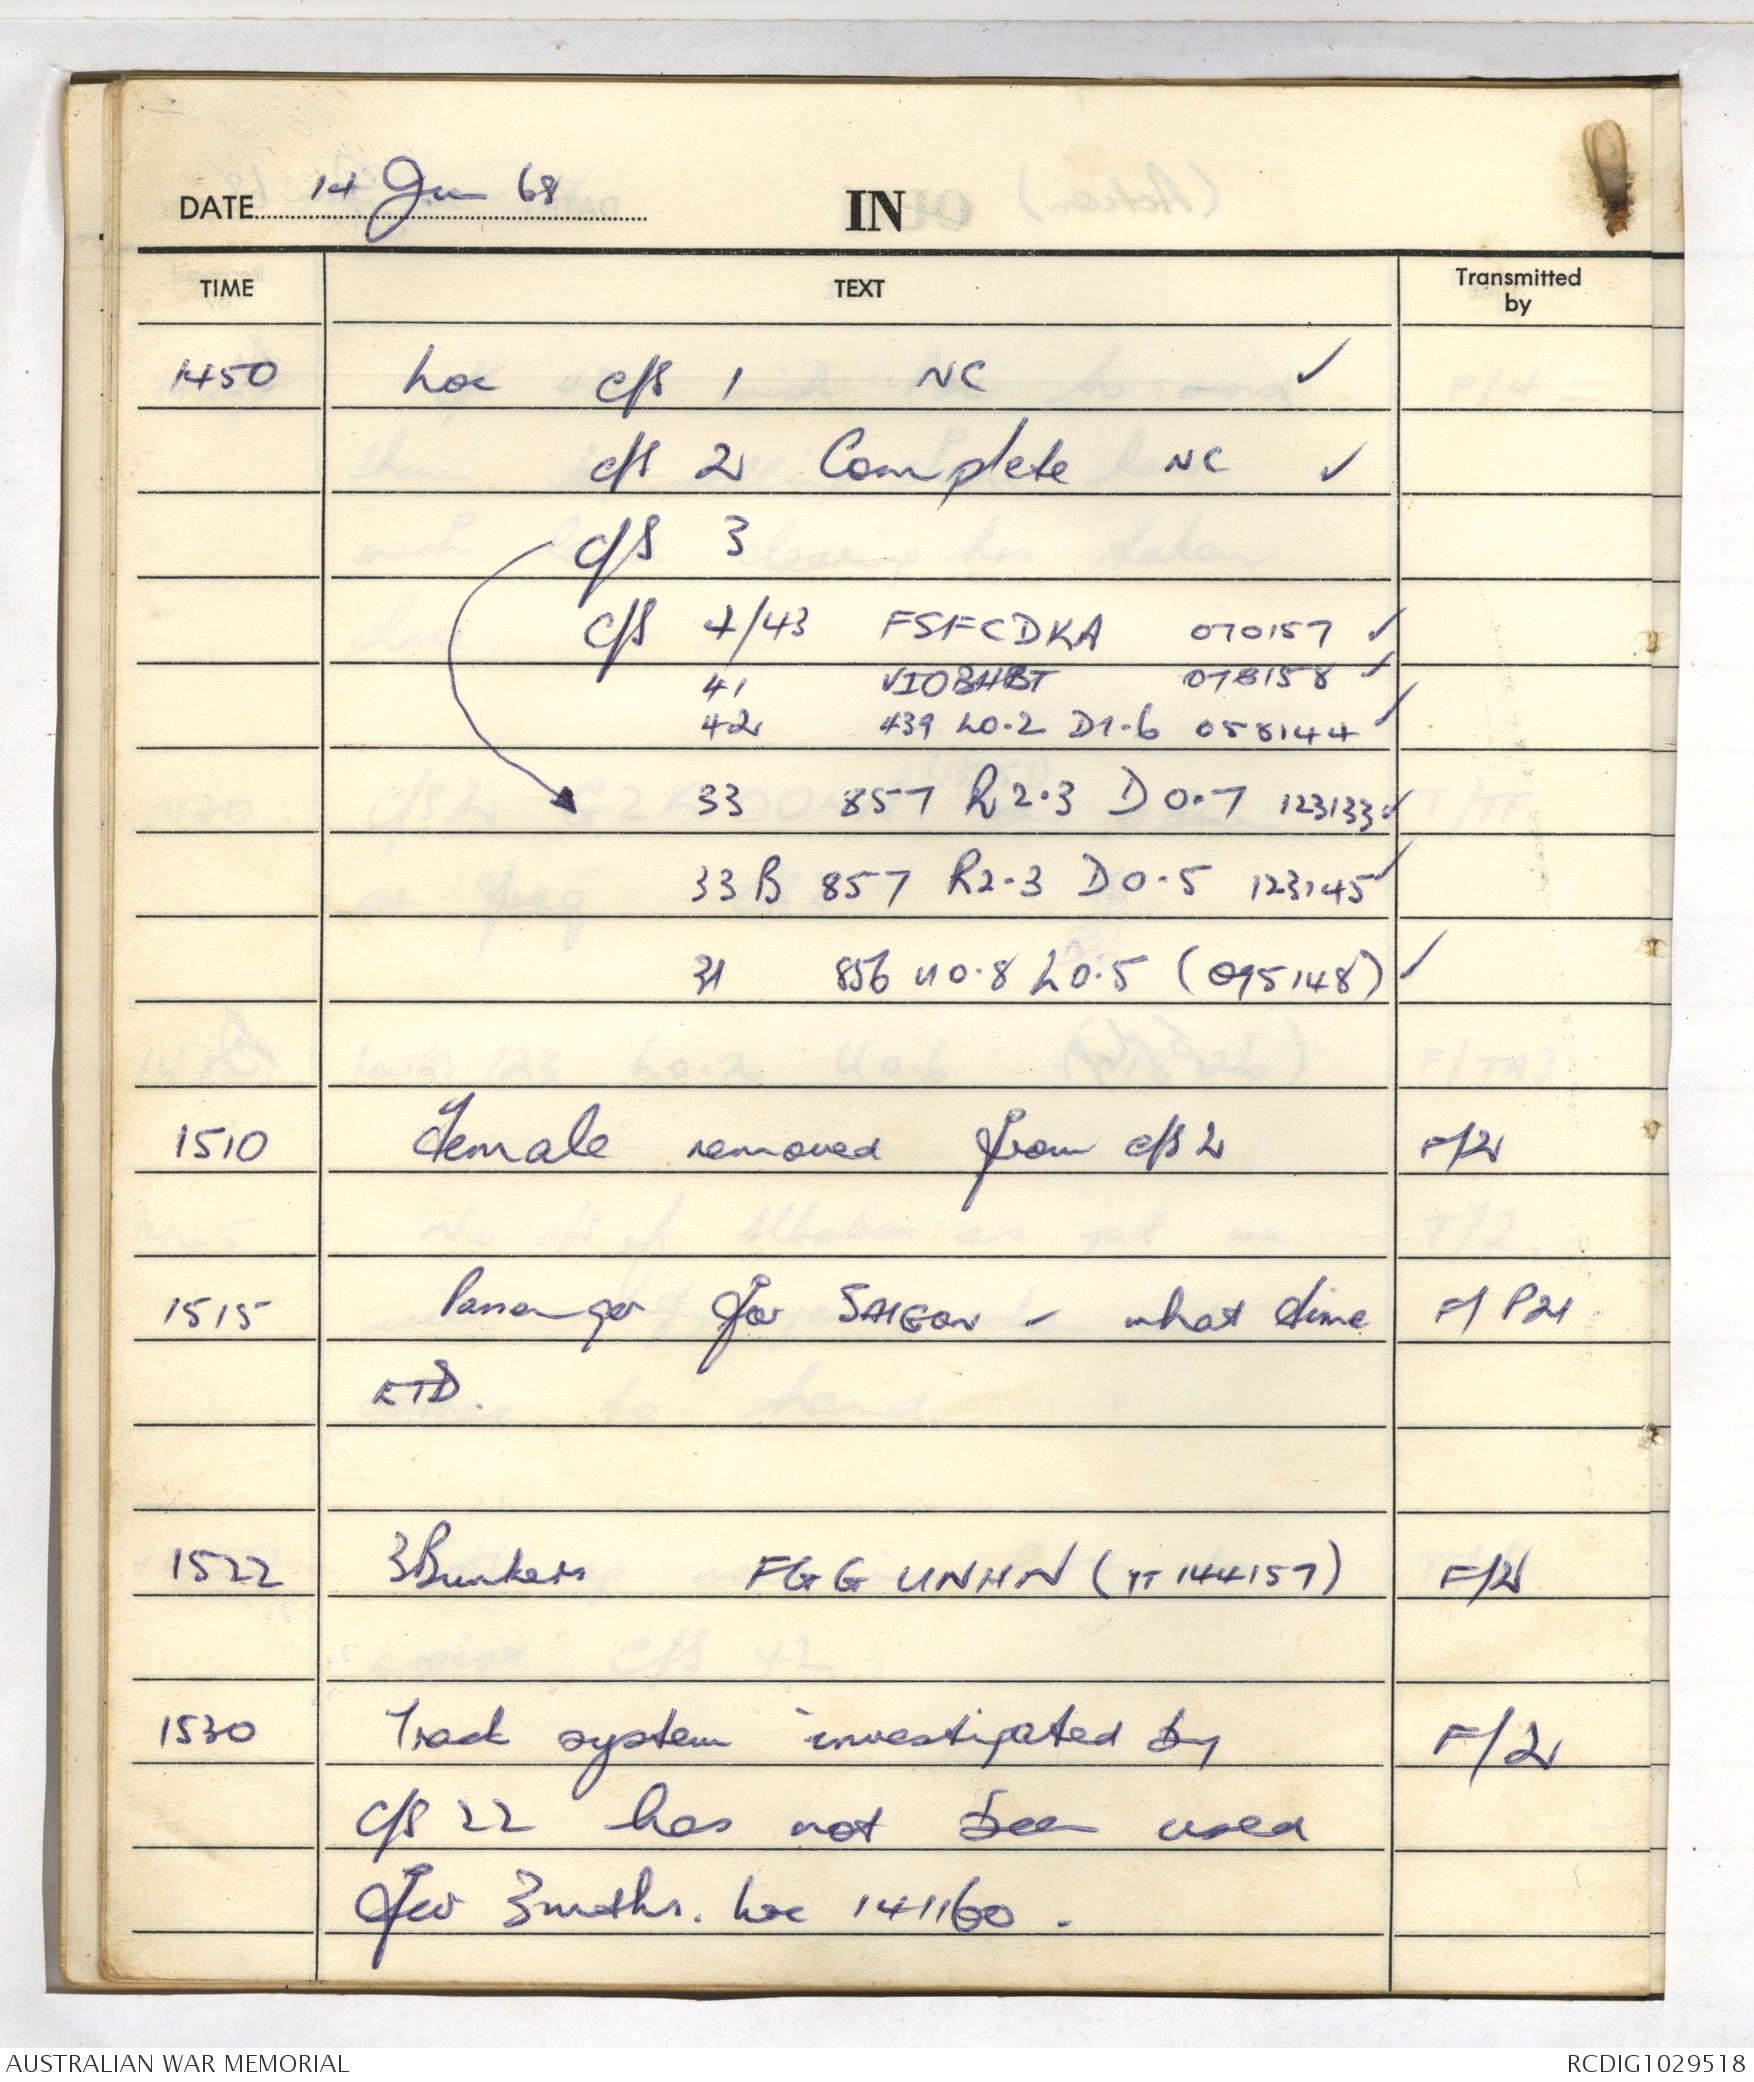 DATE 14 Jun 68 IN
TIME TEXT Transmitted by
1450 Loc c/s 1 NC ✓
c/s 2 Complete NC ✓
c/s 3
c/s 4/43 FSFCDKA 070157 ✓
41 VIOBHBT 078158 ✓
42 439 L0.2 D1.6 058144 ✓
33 857 R2.3 D0.7 123133 ✓
33B 857 R2.3 D0.5 123145 ✓
31 856 U0.8 L0.5 (095148) ✓
1510 Female removed from c/s 2 F/2
1515 Passenger for SAIGON - what time F/P24
ETD.
1522 3 Bunkers FGG UNHN (YT 144157) F/2
1530 Track system investigated by F/2
c/s 22 has not been used
for 3 mths. Loc 141160.
AUSTRALIAN WAR MEMORIAL RCDIG1029518